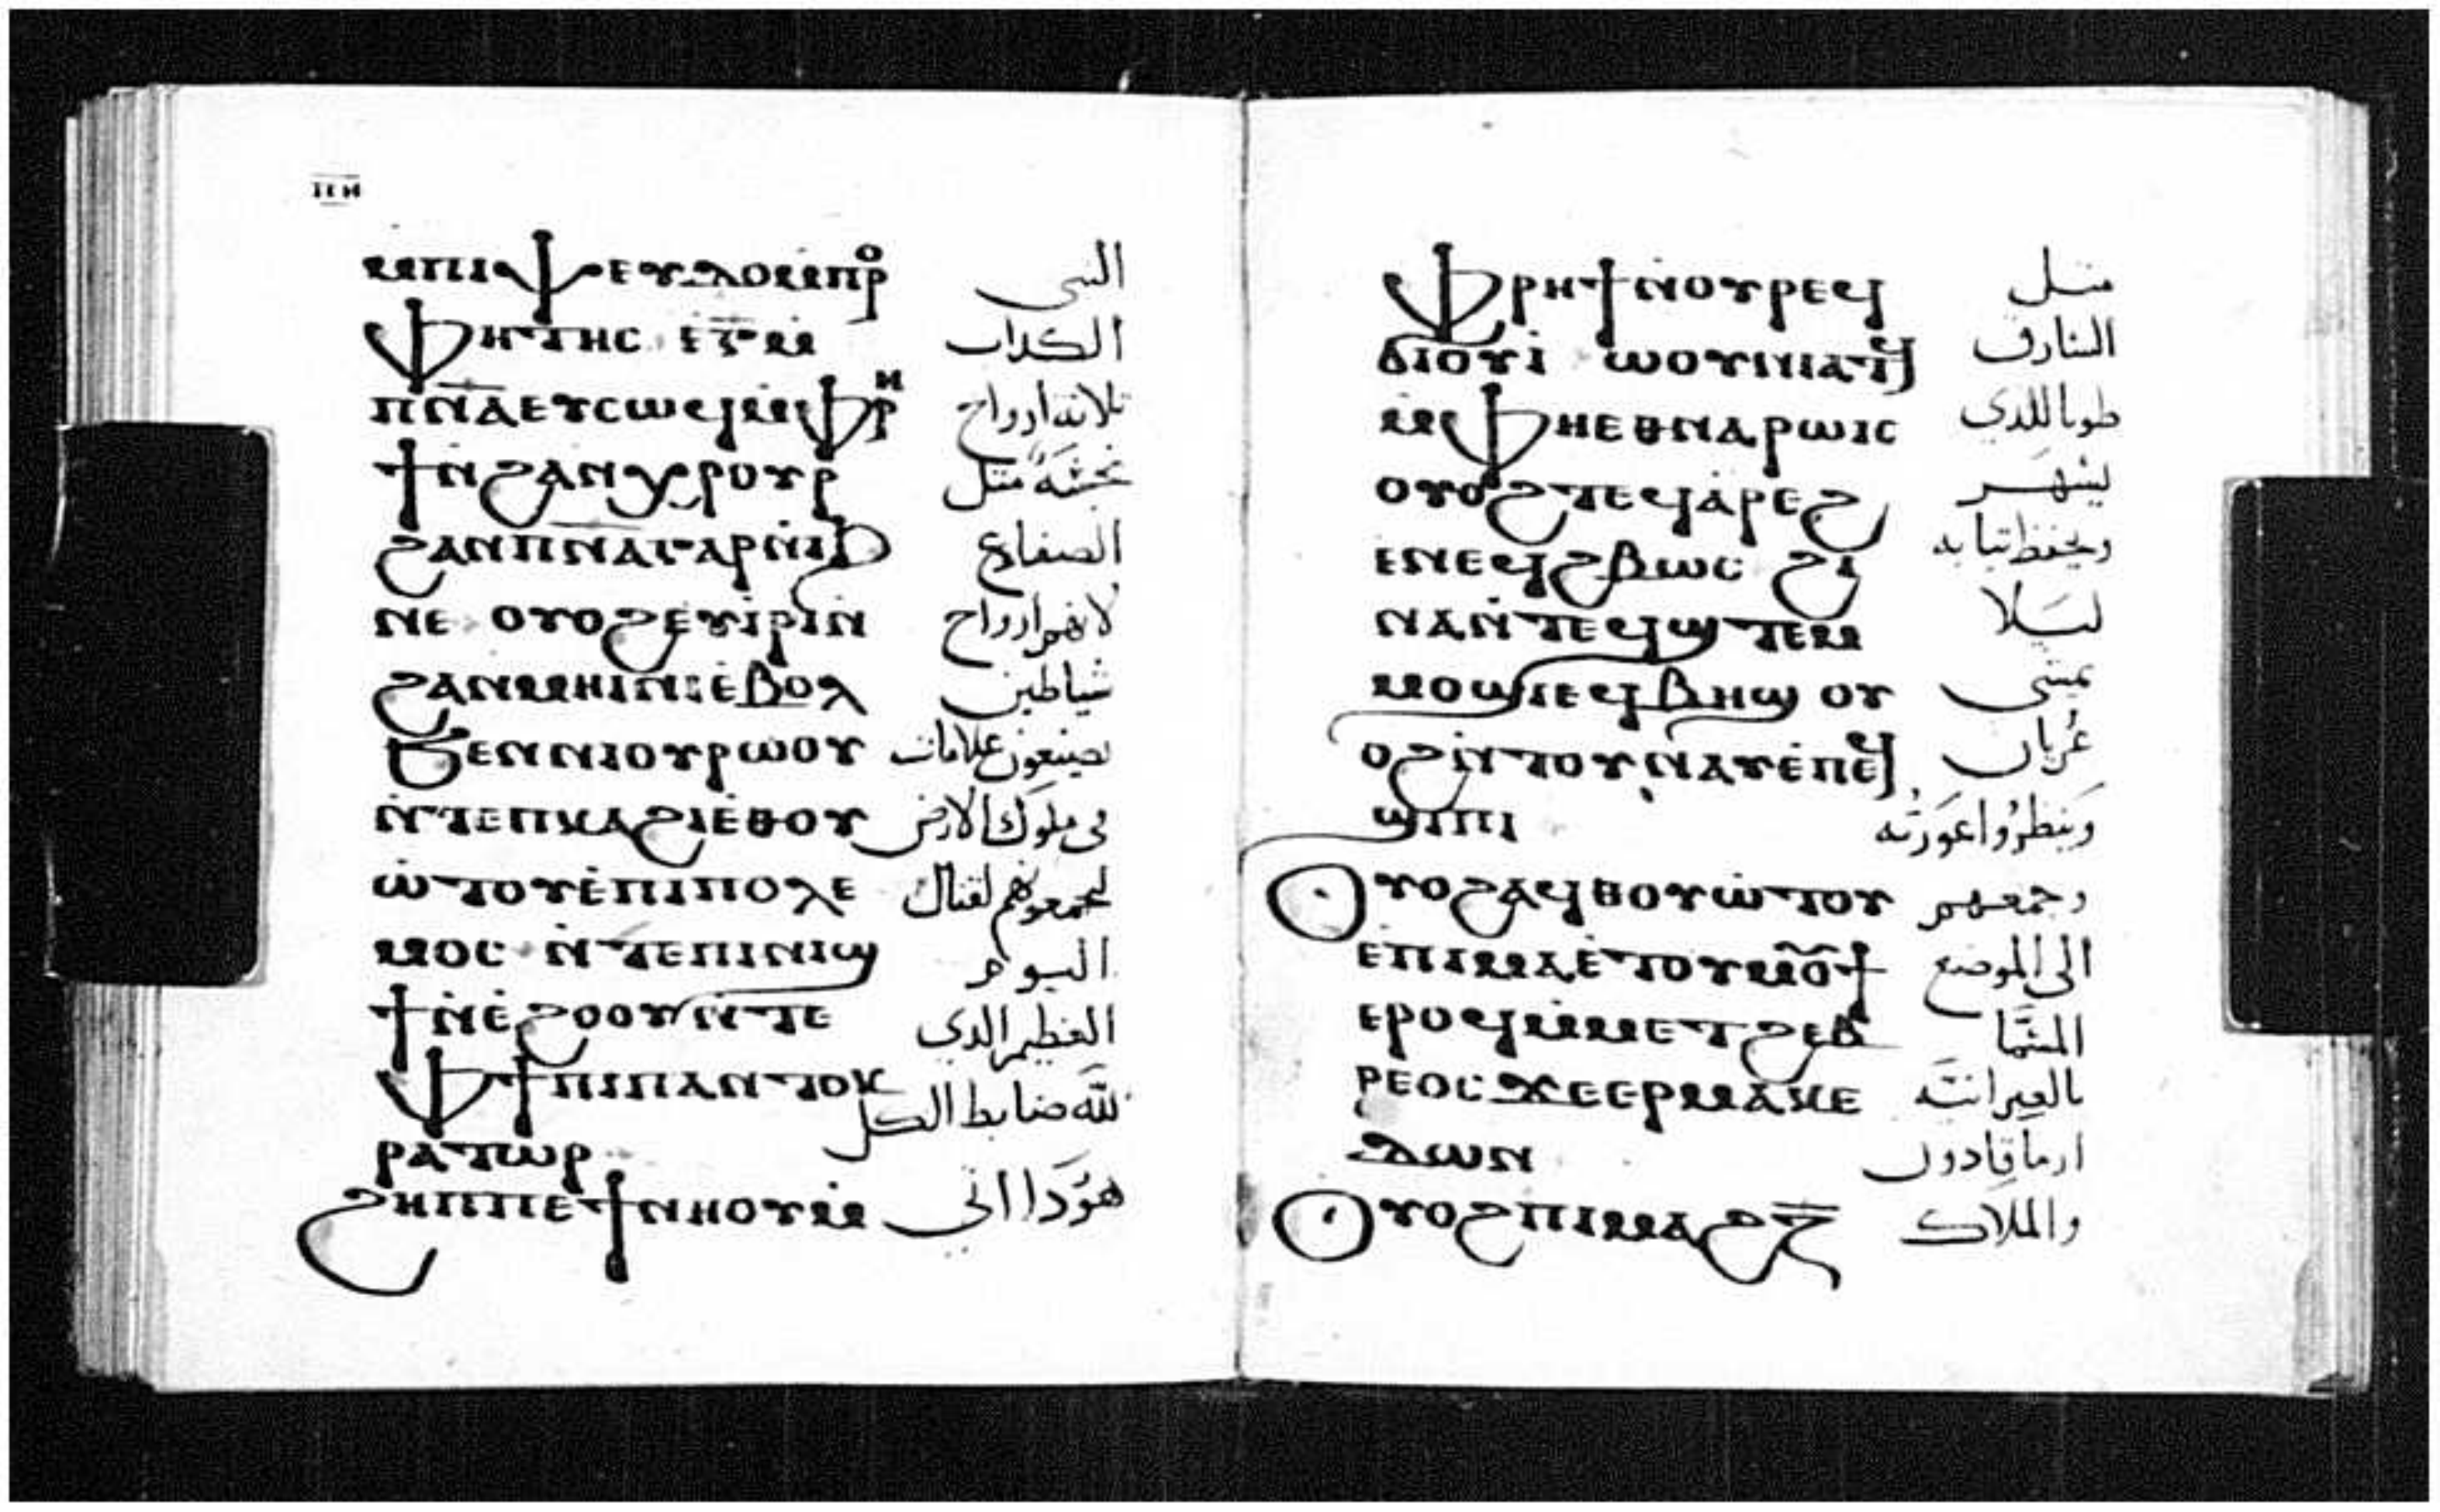 ⲙⲡⲓⲯⲉⲩⲇⲟⲙⲡⲣⲟ النبى
ⲫⲏⲧⲏⲥ ⲉⲅⲙ الكداب
ⲡⲛⲁⲉⲩⲥⲱϥⲙⲫⲣⲏ تلاتة ارواح
ϯⲛϩⲁⲛⲭⲣⲟⲩⲣ نجسة متل
ϩⲁⲛⲡⲛⲁⲅⲁⲣⲛⲓϧ الضفادع
ⲛⲉ ⲟⲩⲟϩⲉⲩⲓⲣⲓⲛ لانهم ارواح
ϩⲁⲛⲙⲏⲓⲛⲓⲉⲃⲟⲗ شياطين
ϧⲉⲛⲛⲓⲟⲩⲣⲱⲟⲩ يصنعون علامات
ⲛⲧⲉⲡⲕⲁϩⲓⲉⲑⲟⲩ فى ملوك الارض
ⲱⲧⲟⲩⲉⲡⲓⲡⲟⲗⲉ ليجمعونهم لقتال
ⲙⲟⲥ ⲛⲧⲉⲡⲓⲛⲓϣ اليوم
ϯⲛⲉϩⲟⲟⲩⲛⲧⲉ العظيم الدى
ⲫϯⲡⲓⲡⲁⲛⲧⲟⲕ لله ضابط الكل
ⲣⲁⲧⲱⲣ
ϩⲏⲡⲡⲉϯⲛⲏⲟⲩⲙ هودا اتى
ⲫⲣⲏϯⲛⲟⲩⲣⲉϥ متل
ϭⲓⲟⲩⲓ ⲱⲟⲩⲛⲓⲁⲧϥ السارق
ⲙⲫⲏⲉⲑⲛⲁⲣⲱⲓⲥ طوبا للدى
ⲟⲩⲟϩⲧⲉϥⲁⲣⲉϩ يسهر
ⲉⲛⲉϥϩⲃⲱⲥ ϩⲓ ويحفظ تيابه
ⲛⲁⲛⲧⲉϥϣⲧⲉⲙ ليلا
ⲙⲟϣⲓⲉϥⲃⲏϣ ⲟⲩ يمشى
ⲟϩⲛⲧⲟⲩⲛⲁⲩⲉⲡⲉϥ عُريان
ϣⲓⲡⲓ وينظرُوا عَورَته
ⲟⲩⲟϩⲁϥⲑⲟⲩⲱⲧⲟⲩ وجمعهم
ⲉⲡⲓⲙⲁⲉⲧⲟⲩⲙⲟⲩϯ الى الموضع
ⲉⲣⲟϥⲙⲙⲉⲧϩⲉⲃ المسَّما
ⲣⲉⲟⲥϫⲉⲉⲣⲙⲁⲕⲉ بالعبرانيَّه
ⲇⲱⲛ ارماقادون
ⲟⲩⲟϩⲡⲓⲙⲁϩⲍ والملاك